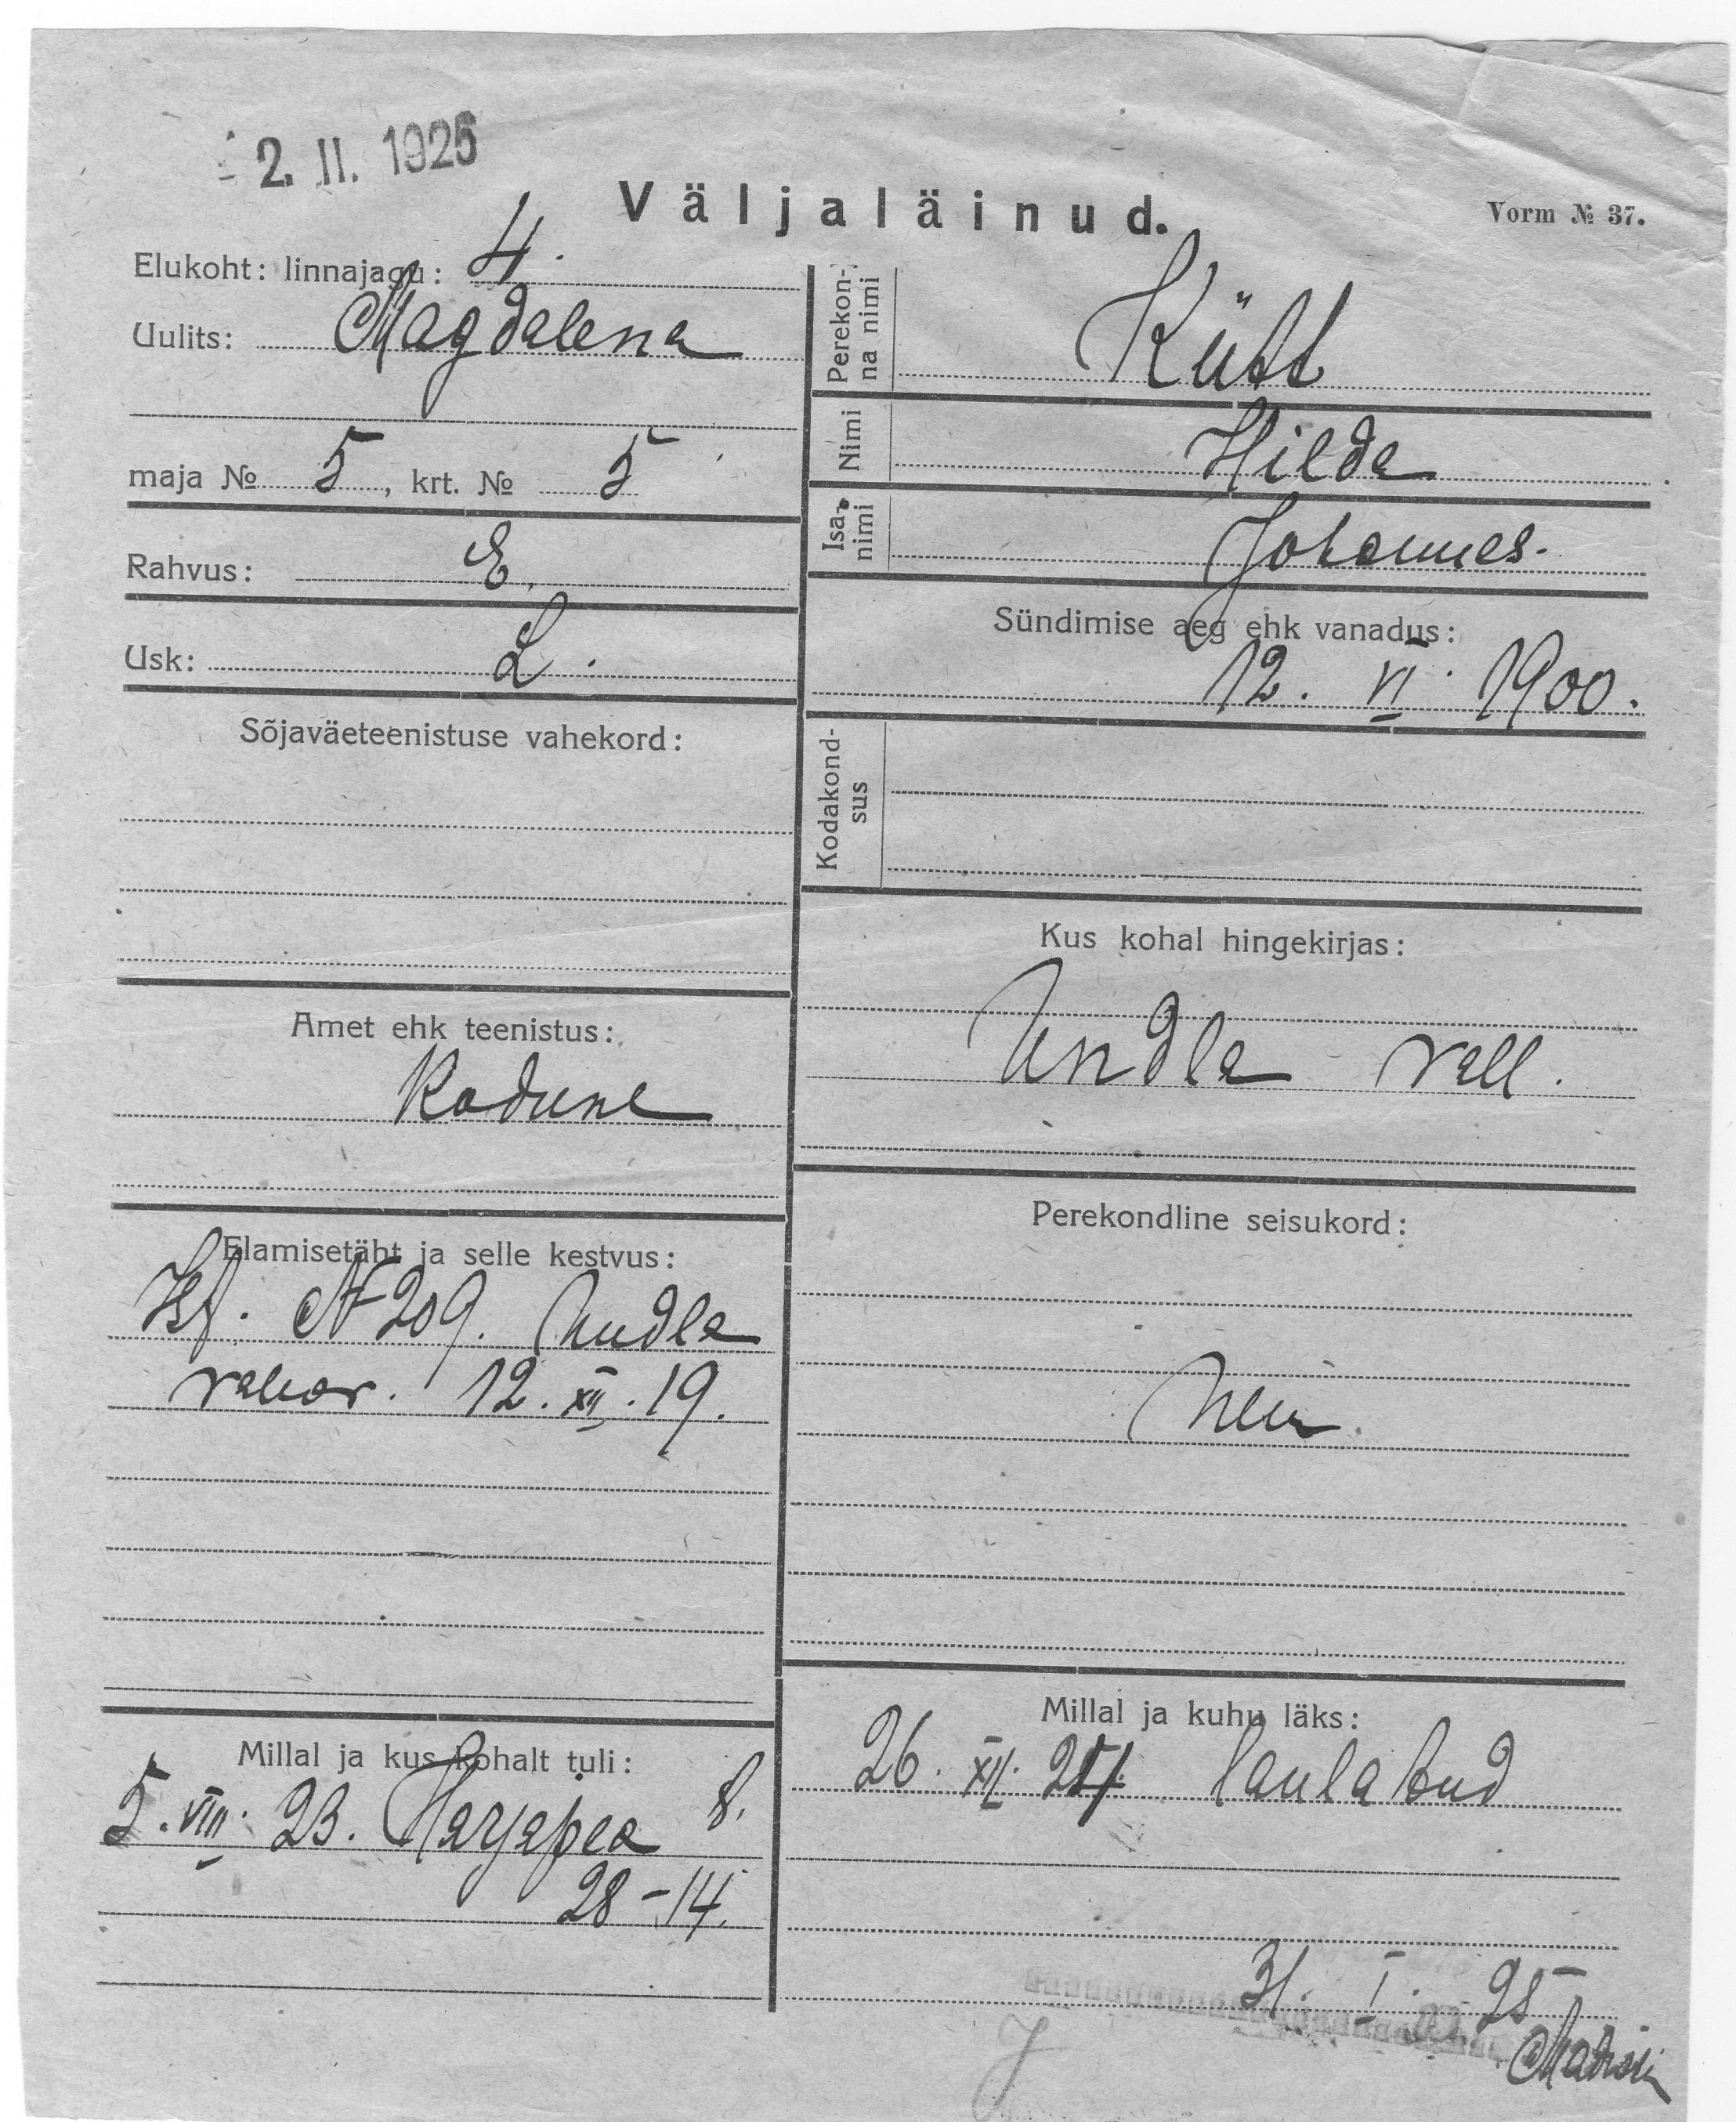 2. II. 1925
Väljaläinud.
Vorm № 37.
Elukoht: linnajagu: 4.
Uulits: Magdalena
maja № 5, krt. № 5
Rahvus: E.
Usk: L.
Sõjaväeteenistuse vahekord:
Amet ehk teenistus:
Kodune
Elamisetäht ja selle kestvus:
Ist. № 209. Undla
valvar. 12. XII. 19.
Millal ja kus kohalt tuli:
5. VIII. 23. Harjapea 8.
28-14.
Perekonna nimi Kütt
Nimi Hilda
Isanimi Johannes-
Sündimise aeg ehk vanadus:
12. VI. 1900.
Kodakondsus
Kus kohal hingekirjas:
Undla vall.
Perekondline seisukord:
Millal ja kuhu läks:
26. XII. laulatud
31. I. 25